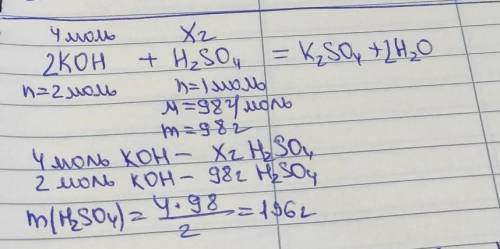 4моль Xг
2KOH + H₂SO₄ = K₂SO₄ + 2H₂O
n=2моль n=1моль
M=98г/моль
m=98г
4моль KOH - Xг H₂SO₄
2 моль KOH - 98г H₂SO₄
m(H₂SO₄) = 4·98/2 = 196г